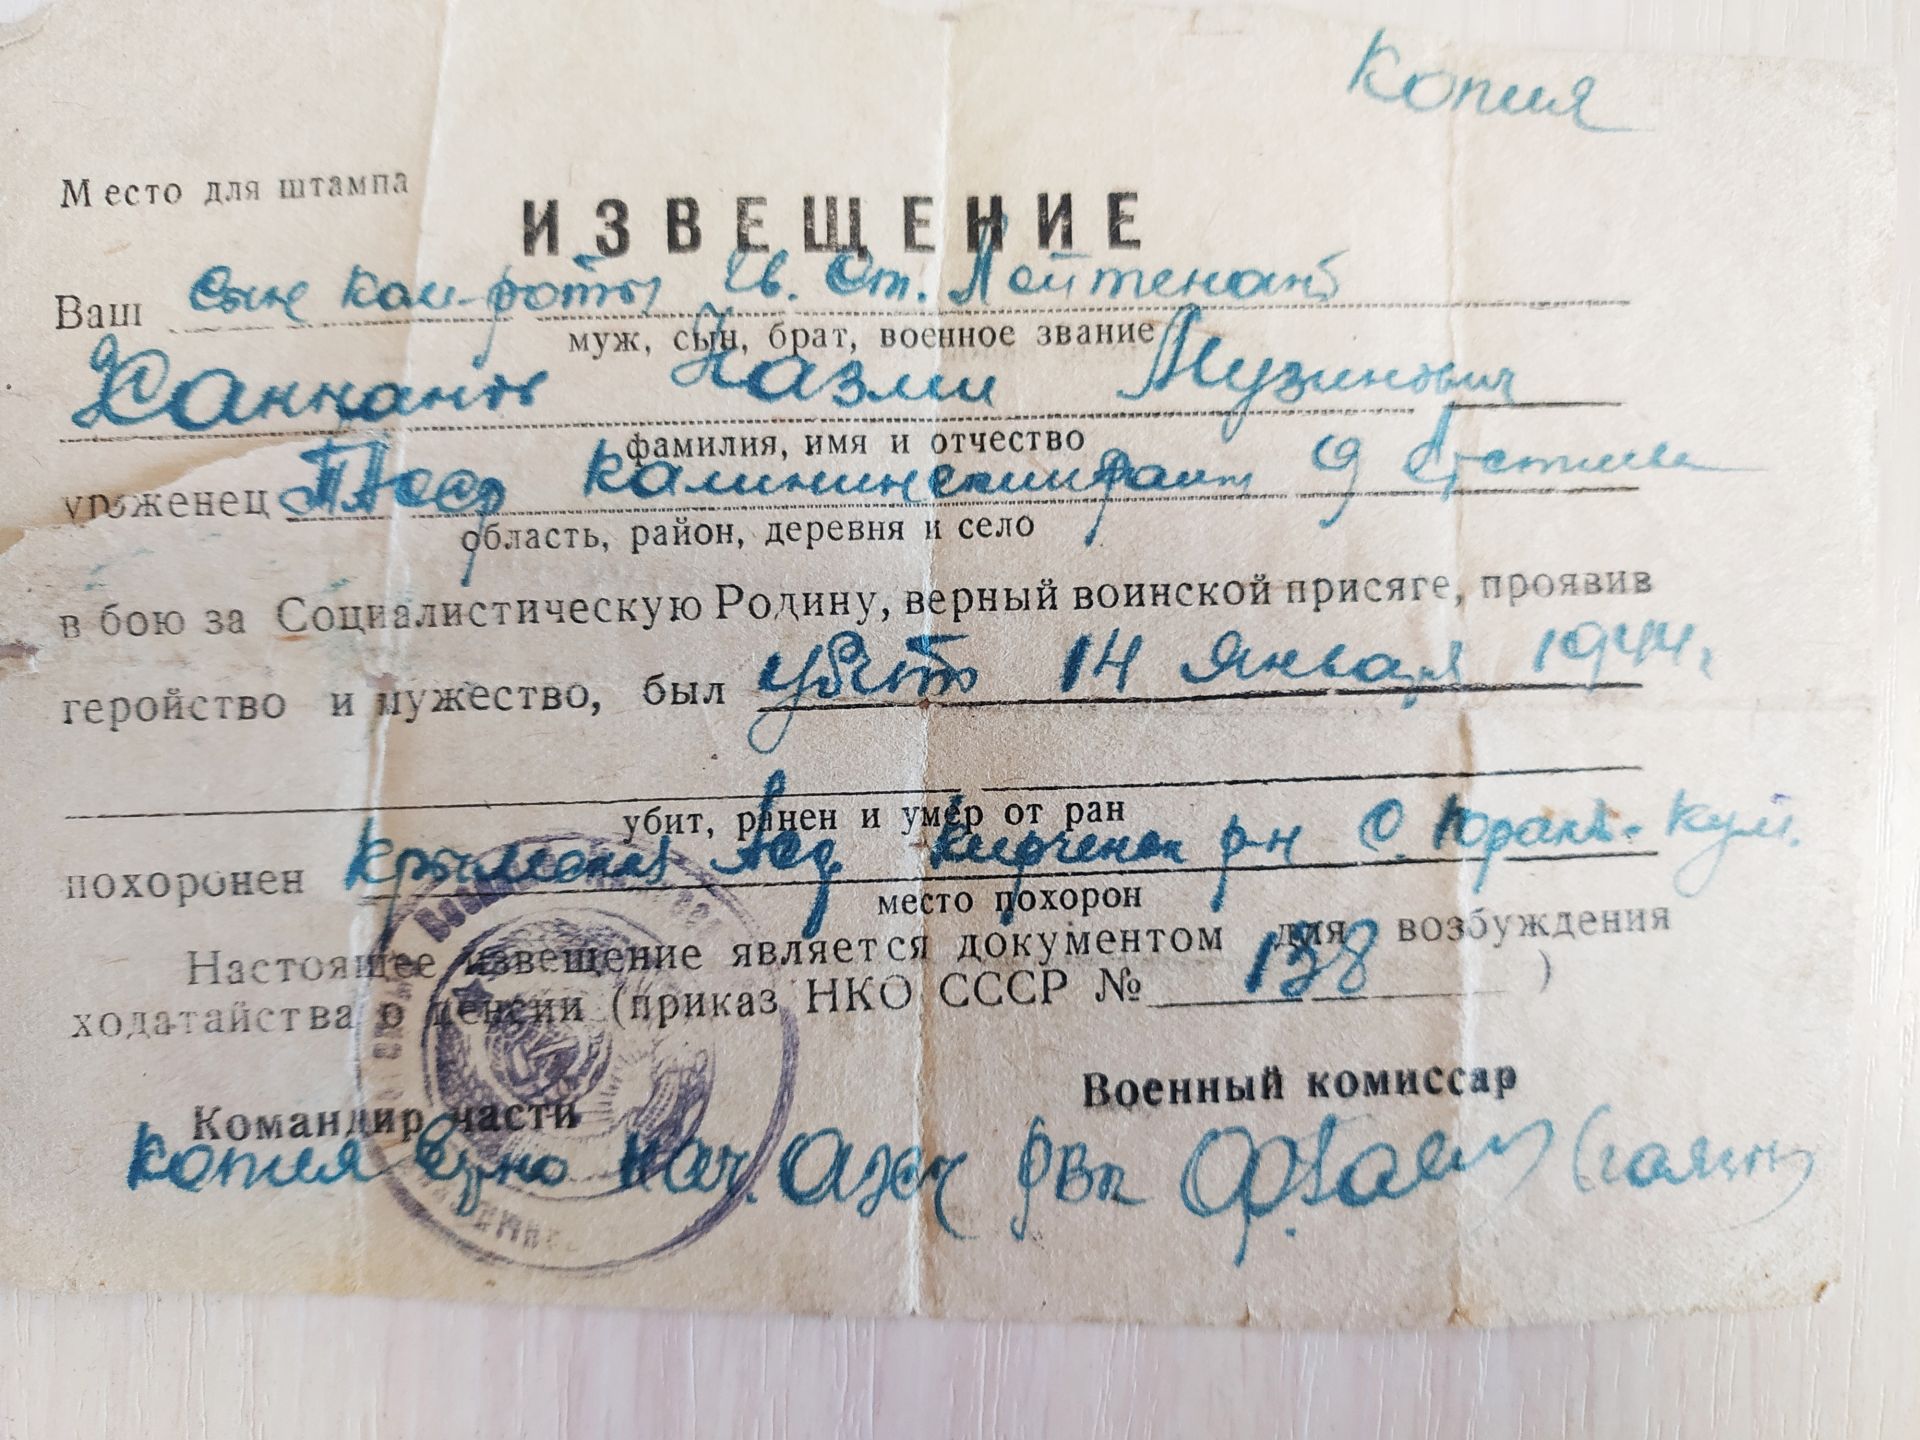 Копия
Место для штампа
ИЗВЕЩЕНИЕ
Ваш сын ком-роты Гв. Ст. Лейтенант
муж, сын, брат, военное звание
Ханнанов Назми Музинович
фамилия, имя и отчество
уроженец ТАССР Калининский район д
область, район, деревня и село
в бою за Социалистическую Родину, верный воинской присяге, проявив
геройство и мужество, был убит 14 января 1944 г.
убит, ранен и умер от ран
похоронен Крымская АССР р-н с.
место похорон
Настоящее извещение является документом для возбуждения
ходатайства о пенсии (приказ НКО СССР № 138 )
Командир части
Военный комиссар
Копия верно нач. РВК